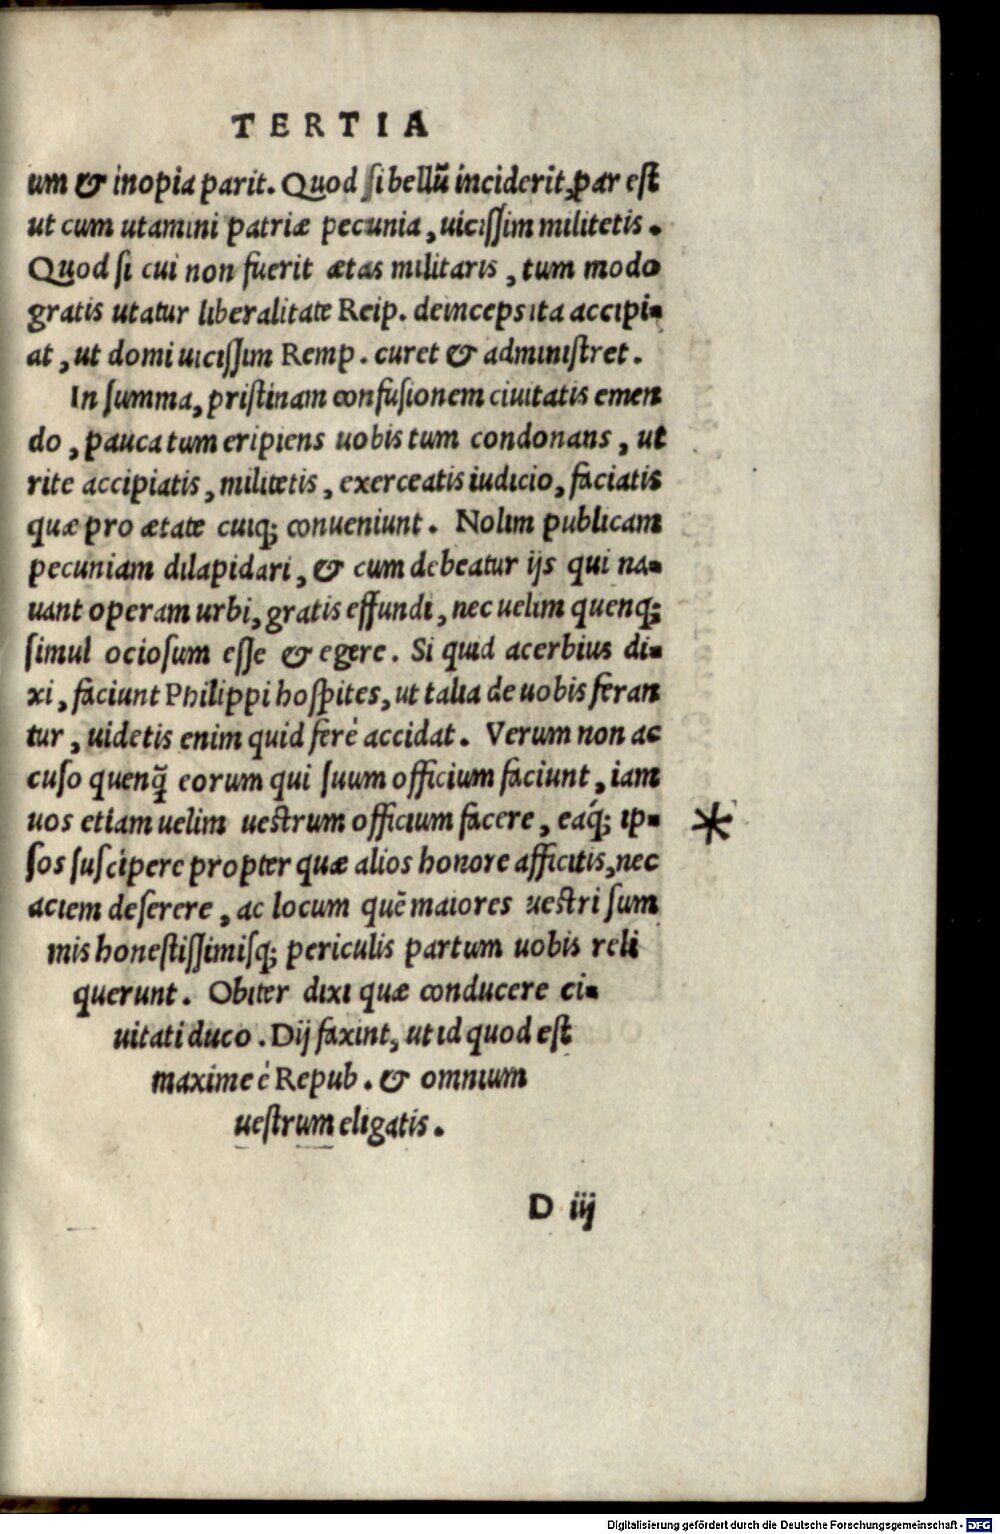 TERTIA
um & inopia parit. Quod si bellū inciderit, par est
ut cum utamini patriæ pecunia, uicissim militetis.
Quod si cui non fuerit ætas militaris, tum modo
gratis utatur liberalitate Reip. deinceps ita accipi-
at, ut domi uicissim Remp. curet & administret.
In summa, pristinam confusionem ciuitatis emen
do, pauca tum eripiens uobis tum condonans, ut
rite accipiatis, militetis, exerceatis iudicio, faciatis
quæ pro ætate cuiq; conueniunt. Nolim publicam
pecuniam dilapidari, & cum debeatur ijs qui na-
uant operam urbi, gratis effundi, nec uelim quenq;
simul ociosum esse & egere. Si quid acerbius di-
xi, faciunt Philippi hospites, ut talia de uobis feran
tur, uidetis enim quid ferè accidat. Verum non ac
cuso quenq̃ eorum qui suum officium faciunt, iam
uos etiam uelim uestrum officium facere, eáq; ip-
sos suscipere propter quæ alios honore afficitis, nec
aciem deserere, ac locum quē maiores uestri sum
mis honestissimisq; periculis partum uobis reli
querunt. Obiter dixi quæ conducere ci-
uitati duco. Dij faxint, ut id quod est
maxime è Repub. & omnium
uestrum eligatis.
D iij
Digitalisierung gefördert durch die Deutsche Forschungsgemeinschaft - DFG